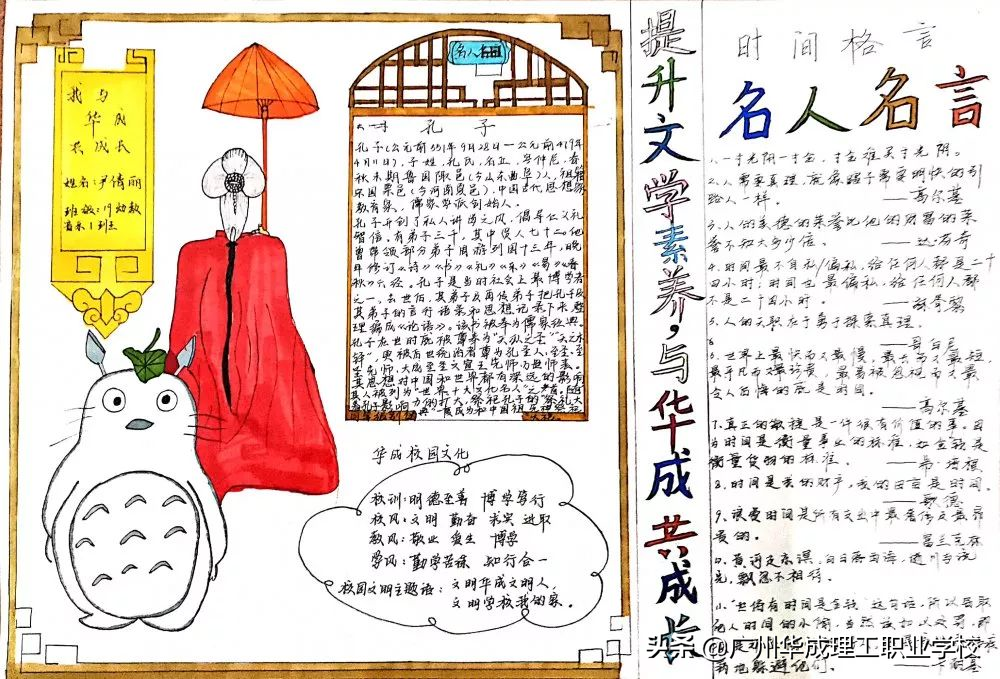 我与
华成
共成长
姓名:尹倩丽
班级:19幼教
名人
孔子
孔子(公元前551年9月28日一公元前479年
4月11日),子姓,孔氏,名丘,字仲尼,春
秋末期鲁国陬邑(今山东曲阜)人,祖籍
宋国栗邑(今河南夏邑),中国古代思想家
教育家,儒家学派创始人。
孔子开创了私人讲学之风,倡导仁义礼
智信。有弟子三千,其中贤人七十二。他
曾带领部分弟子周游列国十三年,晚
年修订《诗》《书》《礼》《乐》《易》《春
秋》六经。孔子是当时社会上最博学者
之一,去世后,其弟子及再传弟子把孔子及
其弟子的言行语录和思想记录下来,整
理编成《论语》。该书被奉为儒家经典。
孔子在世时就被尊奉为"天纵之圣""天之木
铎",更被后世统治者尊为孔圣人、至圣、至
圣先师、大成至圣文宣王先师、万世师表。
其思想对中国和世界都有深远的影响
其人被列为"世界十大文化名人"之首。随
着孔子影响力的扩大,祭祀孔子的"祭孔大
华成校园文化
校训:明德至善 博学笃行
校风:文明 勤奋 求实 进取
教风:敬业 爱生 博学
学风:勤学苦练 知行合一
校园文明主题语:文明华成文明人,
文明学校我的家。
提升文学素养,与华成共成长
时间格言
名人名言
1.一寸光阴一寸金,寸金难买寸光阴。
2.人需要真理,就像瞎子需要明快的引
路人一样。 ——高尔基
3.人的美德的荣誉比他的财富的荣
誉不知大多少倍。 ——达·芬奇
4.时间最不自私/偏私,给任何人都是二十
四小时;时间也最偏私,给任何人都
不是二十四小时。 ——赫胥黎
5.人的天职在于勇于探索真理。
——哥白尼
6
世界上最快而又最慢,最长而又最短,
最平凡而又最珍贵,最易被忽视而又最
令人后悔的就是时间。
——高尔基
7.真正的敏捷是一件很有价值的事。因
为时间是衡量事业的标准,如金钱是
衡量货物的标准。 ——弗·培根
8.时间是我的财产,我的田亩是时间。
——歌德
9.浪费时间是所有支出中最奢侈及最昂
贵的。 ——富兰克林
飘忽不相待。
11."土倚有时间是金钱"这句话,
头条 @广州华成理工职业学校